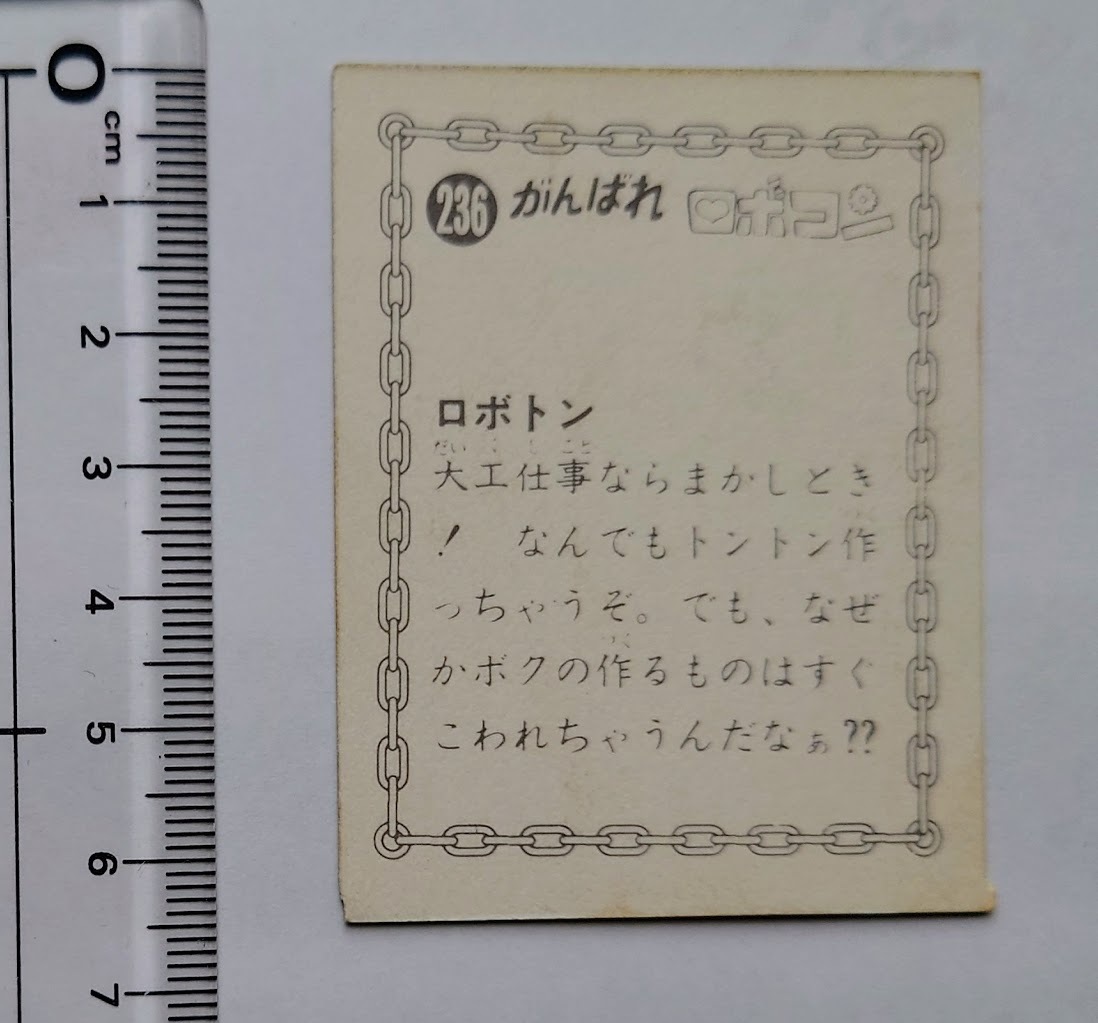 0
cm
1
2
3
4
5
6
7
236 がんばれ ロボコン
ロボトン
だい く し ごと
大工仕事ならまかしとき
! なんでもトントン作
っちゃうぞ。でも、なぜ
つく
かボクの作るものはすぐ
こわれちゃうんだなぁ??